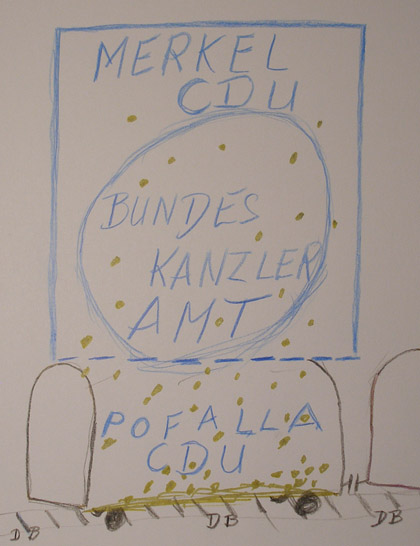 MERKEL
CDU
BUNDES
KANZLER
AMT
POFALLA
CDU
DB DB DB